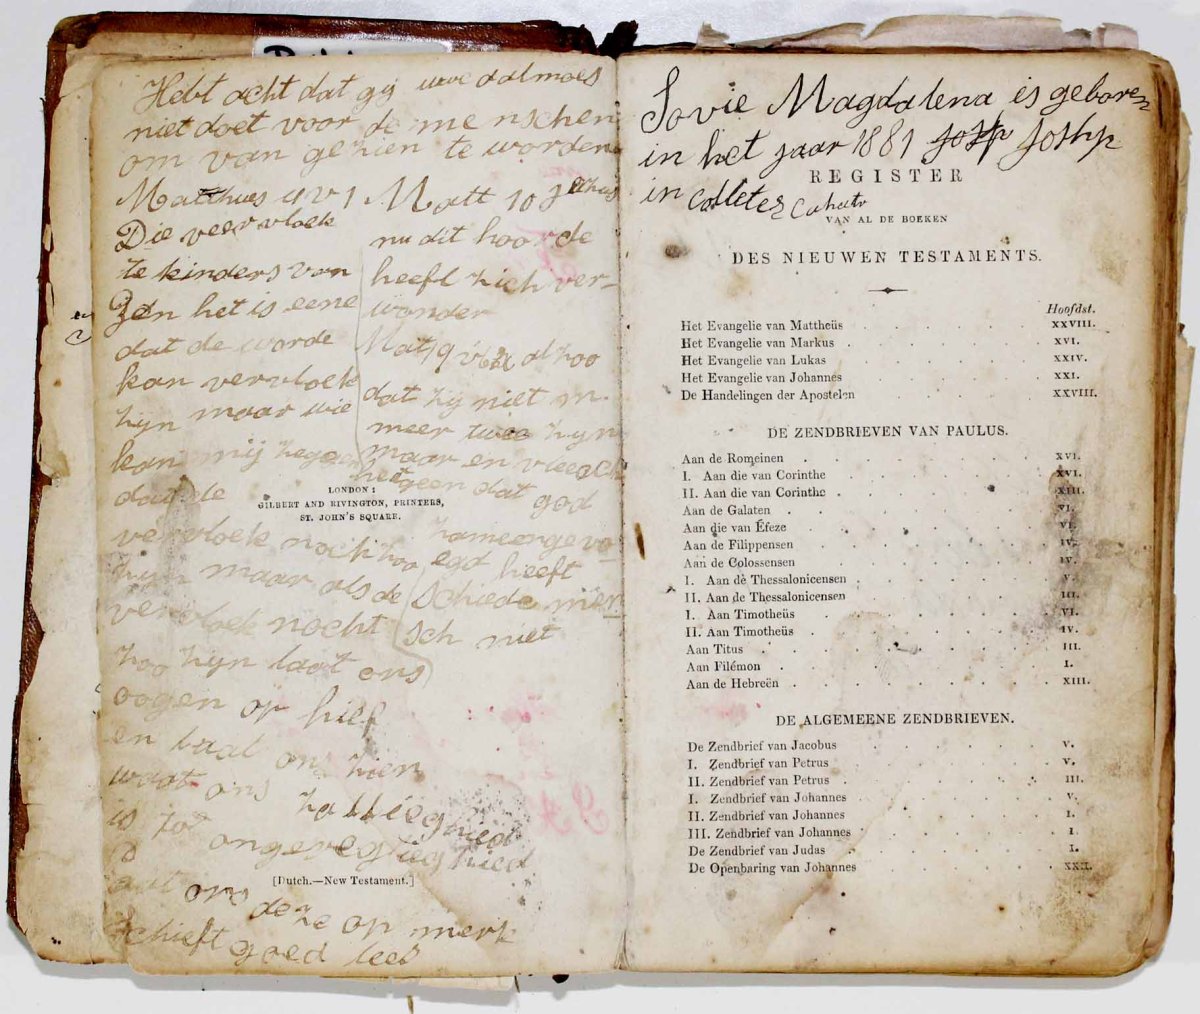 Hebt acht dat gij uwe aalmoes
niet doet voor de me nschen
om van gezien te worden
Matthus
Die veervloek
te kinders van
het is eene
dat de worde
kan vervloek
zijn maar wie
kan mij zeggen
dat de
vervloek noch zoo
zijn maar als de
vervloek nocht
zoo zijn laat ons
oogen op hief
en laat ons zien
waat ons zalleeghied
is tot ongeregtieghied
ons deze op merk
schieft goed lees
Matt 10
nu dit hoorde
heeft zich ver-
wonder
Mat 19 v
dat zij niet m
meer twee zyn
maar en vleesch
heetgeen dat god
zameengevo
egd heeft
schiede men
sch niet
LONDON:
GILBERT AND RIVINGTON, PRINTERS,
ST. JOHN'S SQUARE.
[Dutch.—New Testament.]
Sovie Magdalena is geboren
in het jaar 1881
in
REGISTER
VAN AL DE BOEKEN
DES NIEUWEN TESTAMENTS.
Hoofdst.
Het Evangelie van Mattheüs XXVIII.
Het Evangelie van Markus XVI.
Het Evangelie van Lukas XXIV.
Het Evangelie van Johannes XXI.
De Handelingen der Apostelen XXVIII.
DE ZENDBRIEVEN VAN PAULUS.
Aan de Romeinen XVI.
I. Aan die van Corinthe XVI.
II. Aan die van Corinthe XIII.
Aan de Galaten VI.
Aan die van Éfeze VI.
Aan de Filippensen IV.
Aan de Colossensen IV.
I. Aan de Thessalonicensen V.
II. Aan de Thessalonicensen III.
I. Aan Timotheüs VI.
II. Aan Timotheüs IV.
Aan Titus III.
Aan Filémon I.
Aan de Hebreën XIII.
DE ALGEMEENE ZENDBRIEVEN.
De Zendbrief van Jacobus V.
I. Zendbrief van Petrus V.
II. Zendbrief van Petrus III.
I. Zendbrief van Johannes V.
II. Zendbrief van Johannes I.
III. Zendbrief van Johannes I.
De Zendbrief van Judas I.
De Openbaring van Johannes XXII.